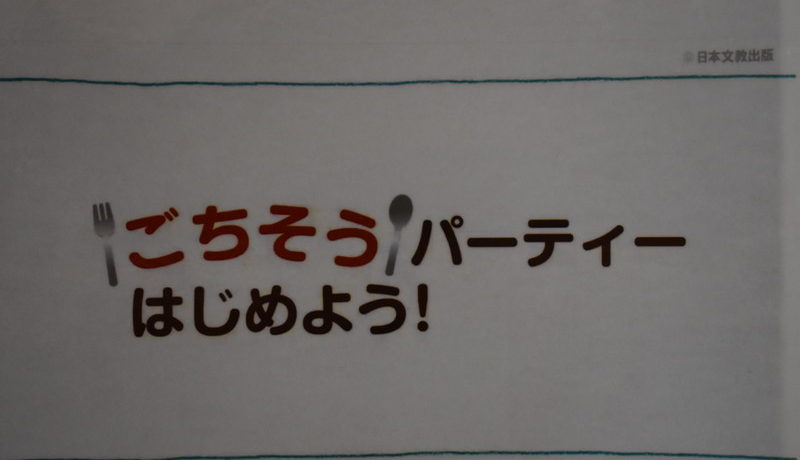 ©日本文教出版
ごちそうパーティー
はじめよう!